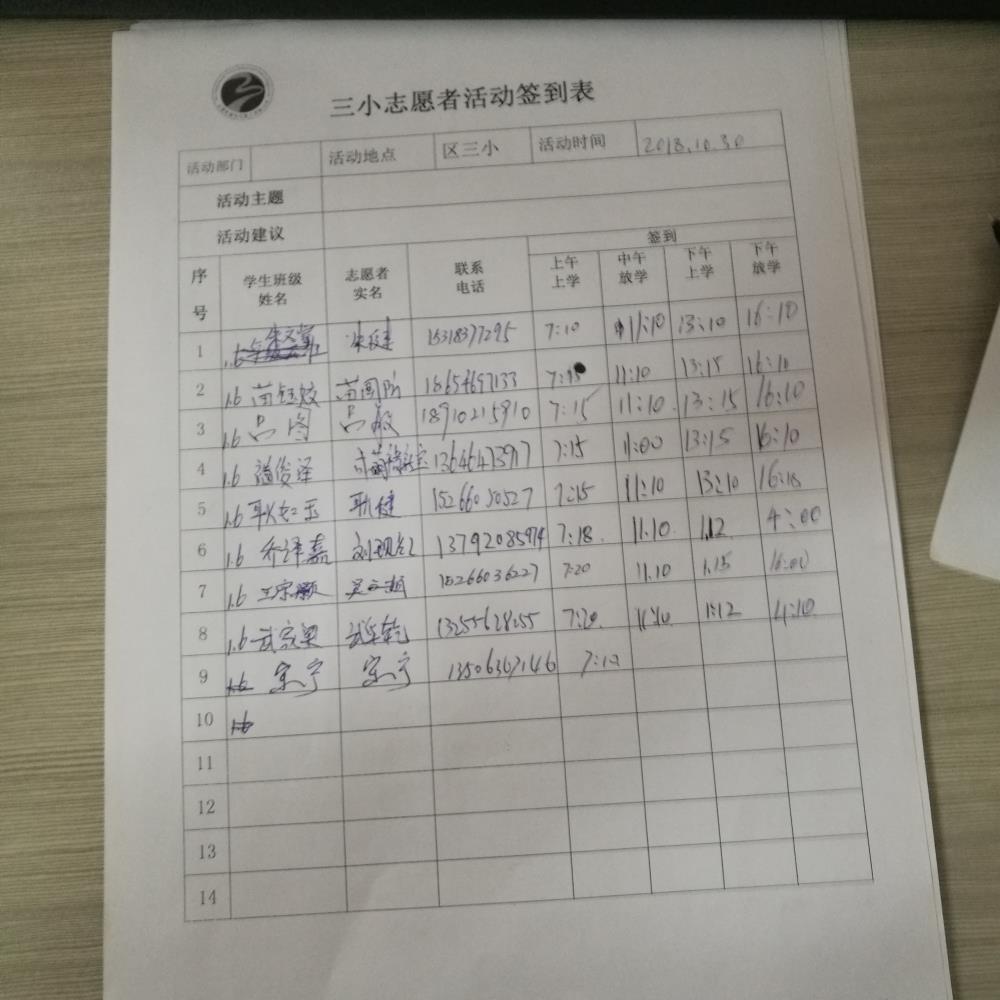 三小志愿者活动签到表
活动部门 活动地点 区三小 活动时间 2018.10.30
活动主题
活动建议
签到
序号 学生班级姓名 志愿者实名 联系电话 上午上学 中午放学 下午上学 下午放学
1 1.6 15318377295 7:10 11:10 13:10 16:10
2 1.6 苗 苗国防 18654697133 7:15 11:10 13:15 16:10
3 1.6 吕 吕敏 18910215910 7:15 11:10 13:15 16:10
4 1.6 潘俊泽 7:15 11:00 13:15 16:10
5 1.6 耿 耿健 15266030527 7:15 11:10 13:10
6 1.6 乔泽嘉 刘 13792085974 7:18 11.10 1.12 4:00
7 1.6 王宗灏 吴 15266036227 7:20 11.10 1.15 16:00
8 1.6 武家 武 13255628255 7:20 11:10 1:12 4:10
9 1.6 宋宁 宋宁 13506367146 7:12
10 1.6
11
12
13
14